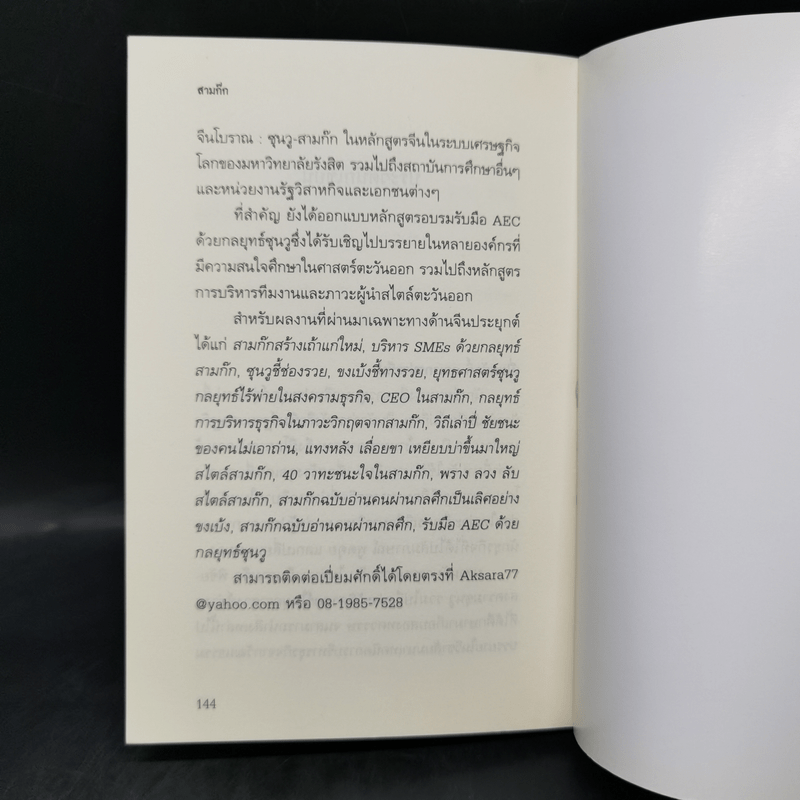 สามก๊ก
จีนโบราณ : ซุนวู-สามก๊ก ในหลักสูตรจีนในระบบเศรษฐกิจ
โลกของมหาวิทยาลัยรังสิต รวมไปถึงสถาบันการศึกษาอื่นๆ
และหน่วยงานรัฐวิสาหกิจและเอกชนต่างๆ
ที่สำคัญ ยังได้ออกแบบหลักสูตรอบรมรับมือ AEC
ด้วยกลยุทธ์ซุนวูซึ่งได้รับเชิญไปบรรยายในหลายองค์กรที่
มีความสนใจศึกษาในศาสตร์ตะวันออก รวมไปถึงหลักสูตร
การบริหารทีมงานและภาวะผู้นำสไตล์ตะวันออก
สำหรับผลงานที่ผ่านมาเฉพาะทางด้านจีนประยุกต์
ได้แก่ สามก๊กสร้างเถ้าแก่ใหม่, บริหาร SMEs ด้วยกลยุทธ์
สามก๊ก, ซุนวูชี้ช่องรวย, ขงเบ้งชี้ทางรวย, ยุทธศาสตร์ซุนวู
กลยุทธ์ไร้พ่ายในสงครามธุรกิจ, CEO ในสามก๊ก, กลยุทธ์
การบริหารธุรกิจในภาวะวิกฤตจากสามก๊ก, วิถีเล่าปี่ ชัยชนะ
ของคนไม่เอาถ่าน, แทงหลัง เลื่อยขา เหยียบบ่าขึ้นมาใหญ่
สไตล์สามก๊ก, 40 วาทะชนะใจในสามก๊ก, พราง ลวง ลับ
สไตล์สามก๊ก, สามก๊กฉบับอ่านคนผ่านกลศึกเป็นเลิศอย่าง
ขงเบ้ง, สามก๊กฉบับอ่านคนผ่านกลศึก, รับมือ AEC ด้วย
กลยุทธ์ซุนวู
สามารถติดต่อเปี่ยมศักดิ์ได้โดยตรงที่ Aksara77
@yahoo.com หรือ 08-1985-7528
144